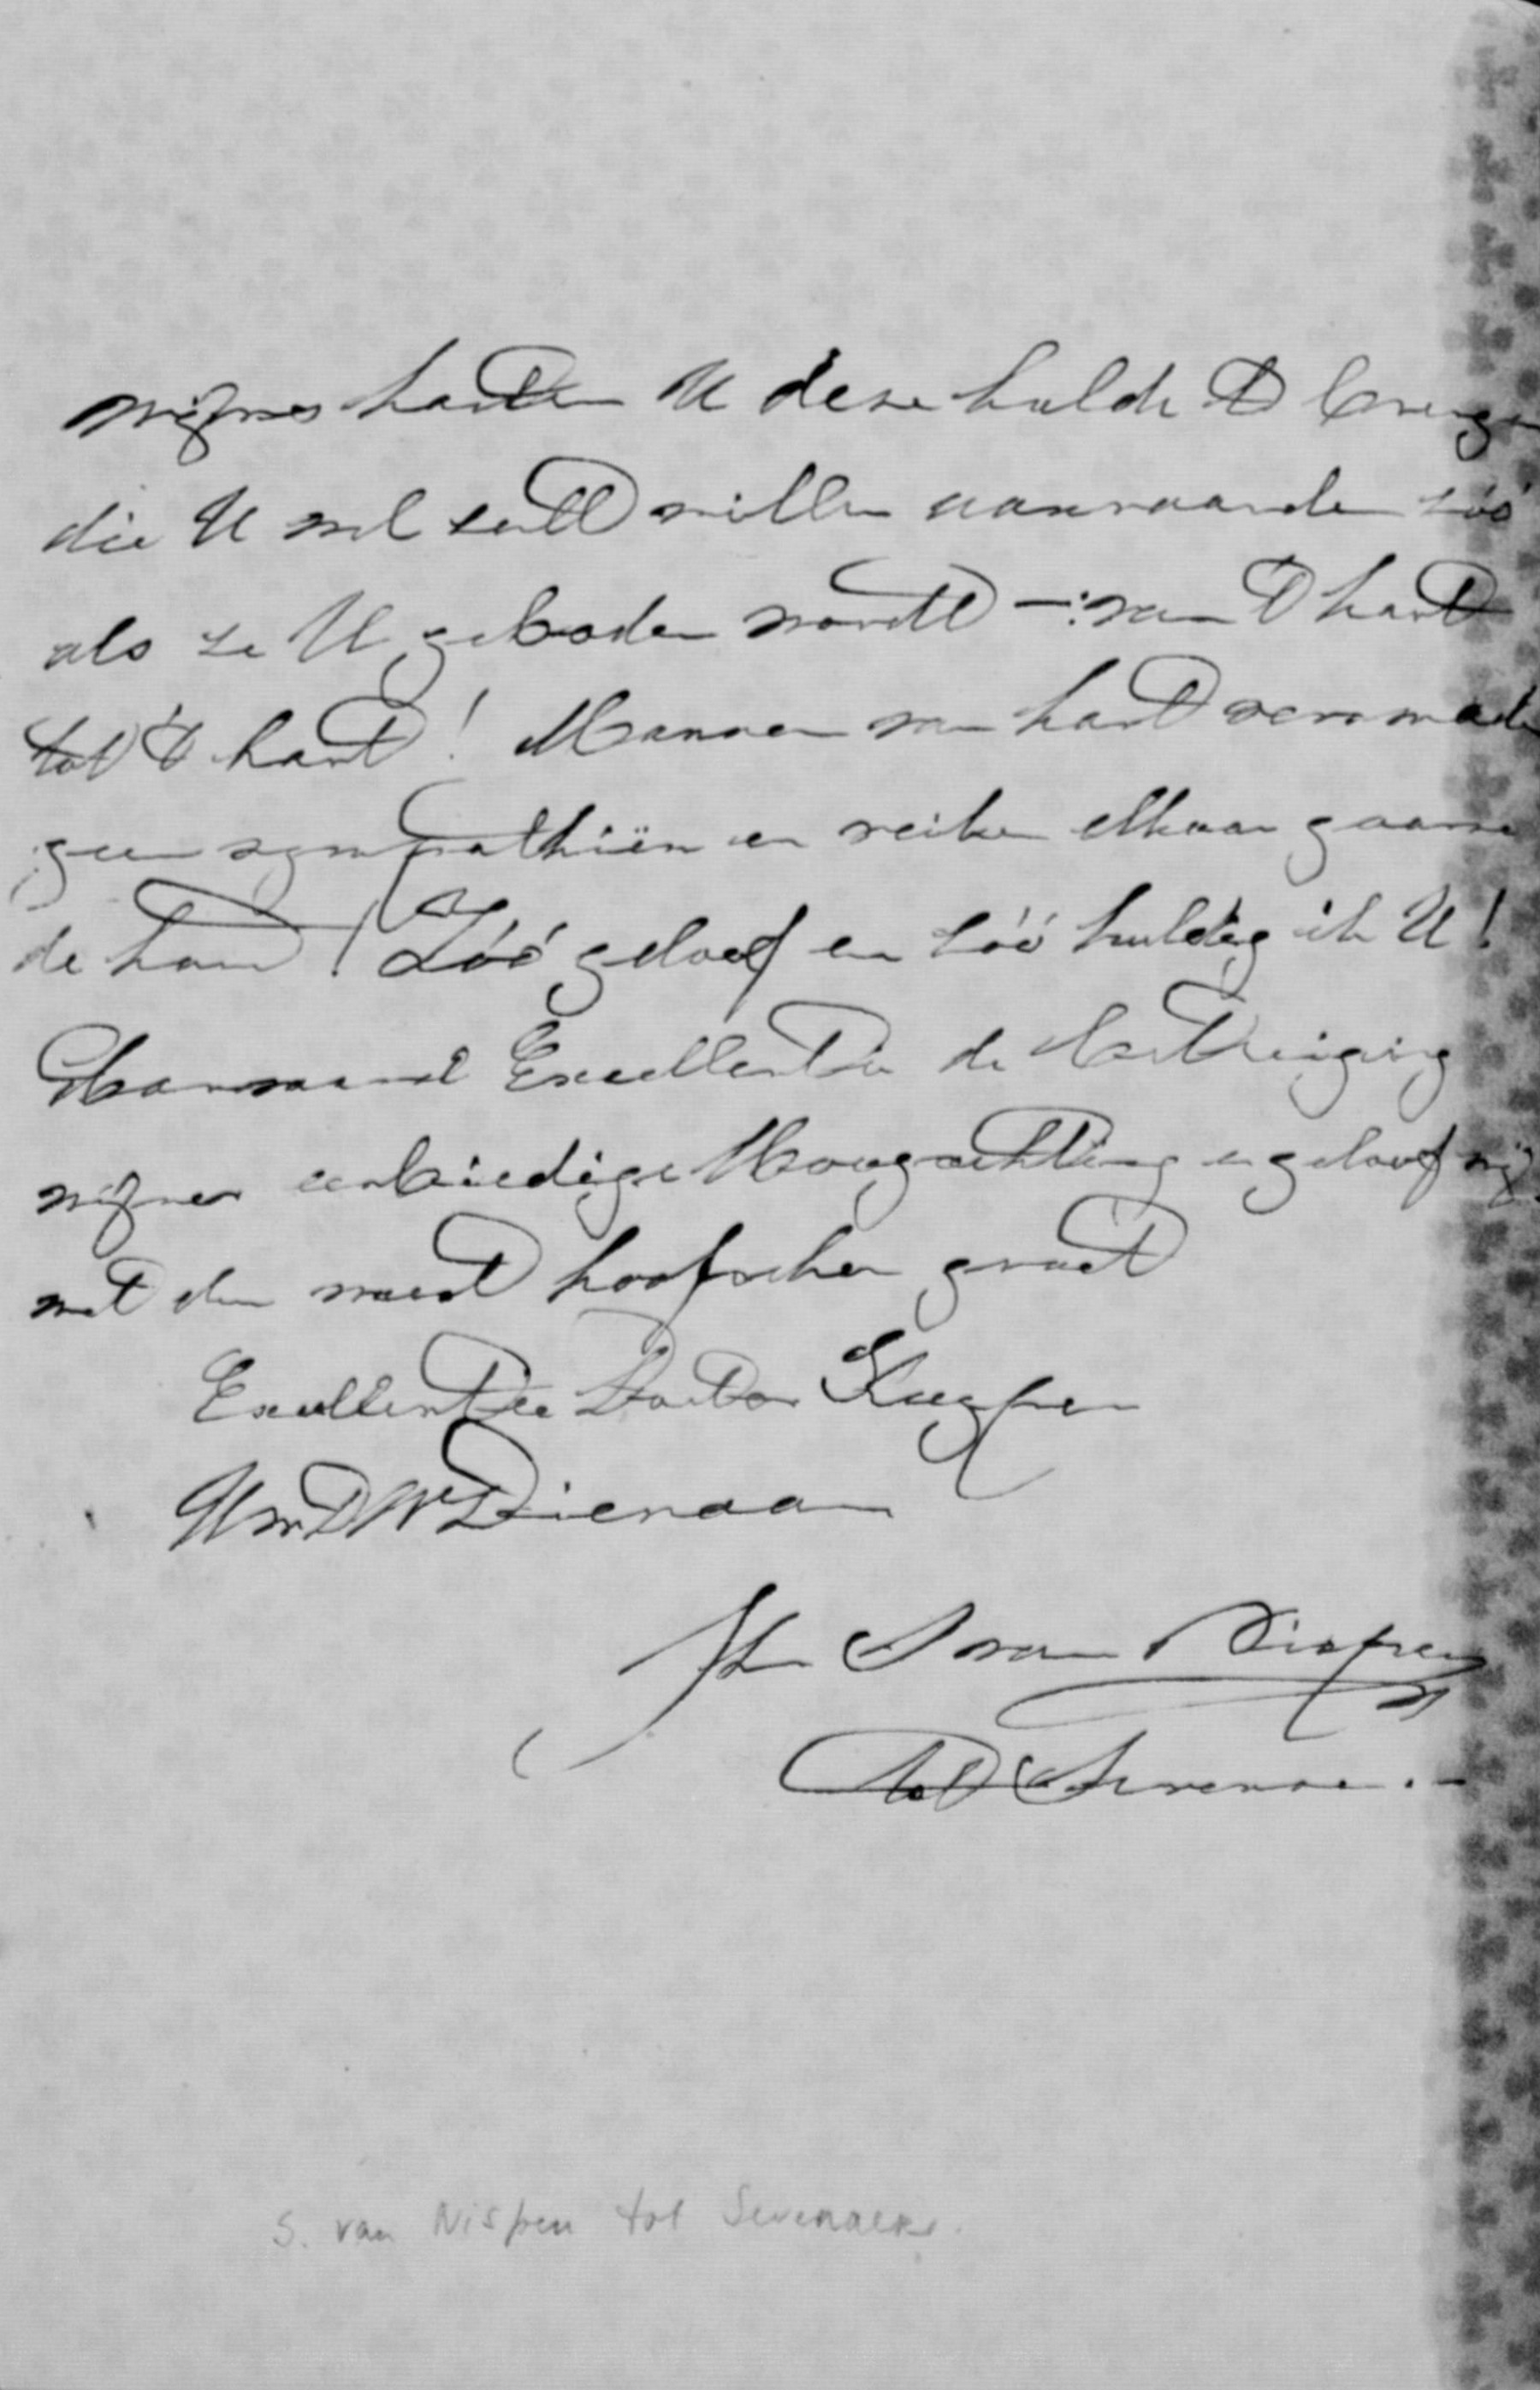 mijnes harten U deze hulde te brengen
die U wel zult willen aanvaarden zóó
als ze U geboden wordt —: van 't hart
tot 't hart! Mannen van hart versmaden
geen sympathiën en reiken elkaar gaarne
de hand! Zóó geloof en zóó huldig ik U!
Aanvaard Excellentie de betuiging
mijner eerbiedige Hoogachting en geloof mij
met den meest hoofschen groet
Excellentie Doctor Kuyper
UwDWDienaar
Jhr S van Nispen
tot Sevenaer.-
S. van Nispen tot Sevenaer.